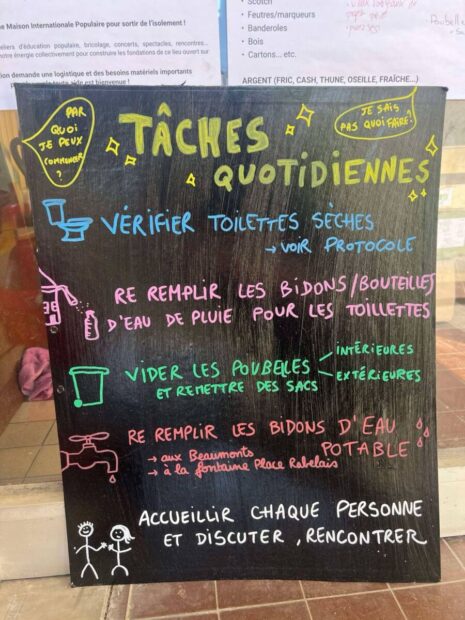 e Maison Internationale Populaire pour sortir de l'isolement !
eliers d'éducation populaire, bricolage, concerts, spectacles, rencontres...
notre énergie collectivement pour construire les fondations de ce lieu ouvert sur
tion demande une logistique et des besoins matériels importants
• Scotch
• Feutres/marqueurs
• Banderoles
• Bois
• Cartons... etc.
ARGENT (FRIC, CASH, THUNE, OSEILLE, FRAÎCHE...)
PAR
QUOI
JE PEUX
COMMENCER
?
JE SAIS
PAS QUOI FAIRE!
TÂCHES
QUOTIDIENNES
VÉRIFIER TOILETTES SÈCHES
→ VOIR PROTOCOLE
RE REMPLIR LES BIDONS/BOUTEILLES
D'EAU DE PLUIE POUR LES TOILLETTES
VIDER LES POUBELLES
ET REMETTRE DES SACS
INTÉRIEURES
EXTÉRIEURES
RE REMPLIR LES BIDONS D'EAU
POTABLE
→ aux Beaumonts
→ à la fontaine Place Rabelais
ACCUEILLIR CHAQUE PERSONNE
ET DISCUTER, RENCONTRER